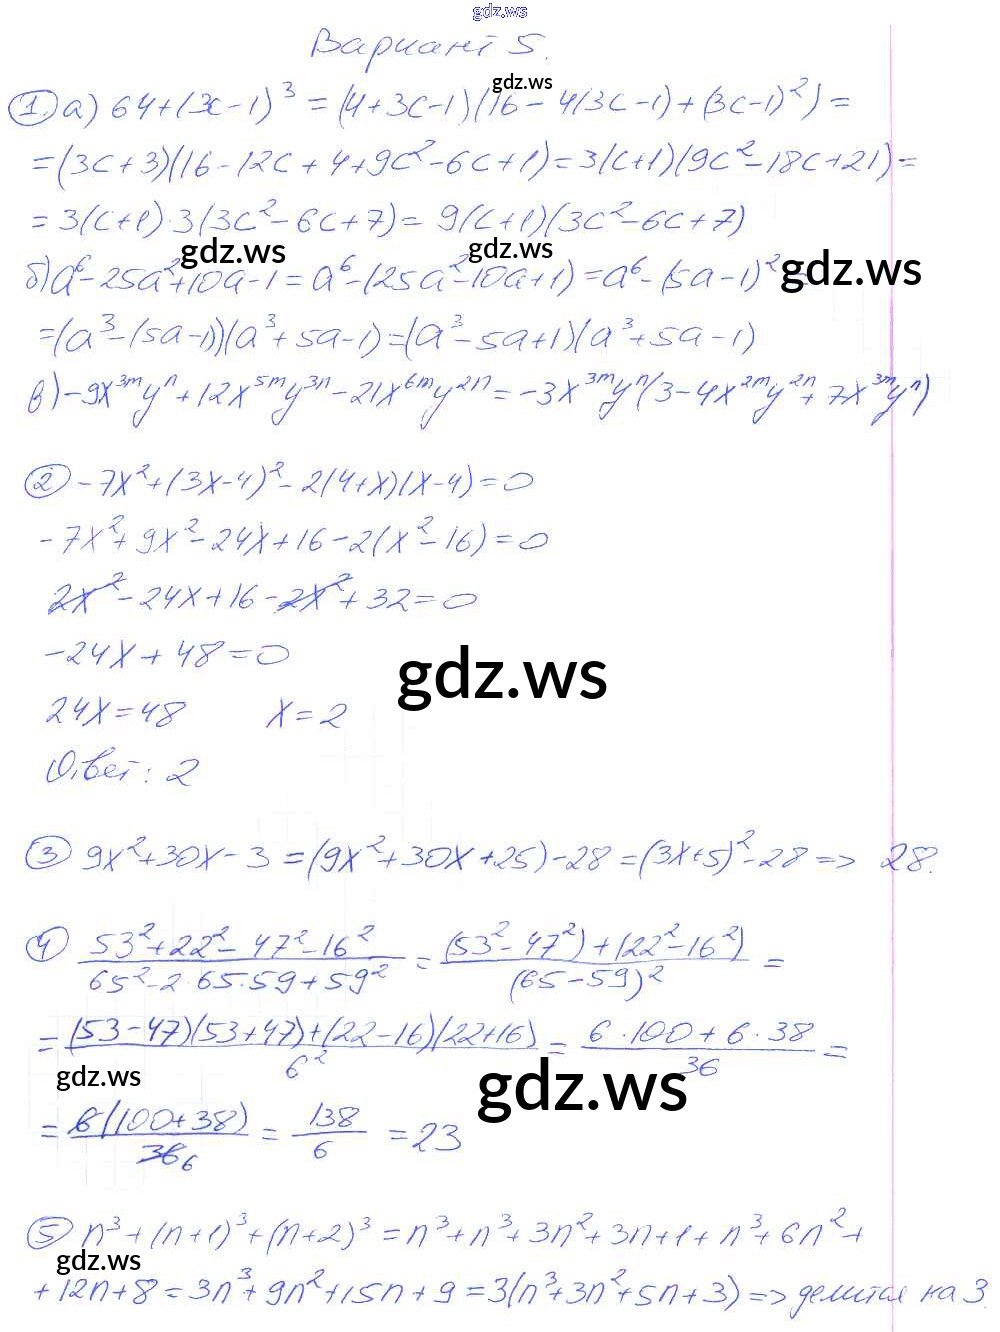 gdz.ws
Вариант 5.
gdz.ws
1. а) 64+(3c-1)³ = (4+3c-1)(16-4(3c-1)+(3c-1)²) =
=(3c+3)(16-12c+4+9c²-6c+1)=3(c+1)(9c²-18c+21)=
=3(c+1)·3(3c²-6c+7)= 9(c+1)(3c²-6c+7)
gdz.ws gdz.ws gdz.ws
б) a⁶-25a²+10a-1=a⁶-(25a²-10a+1)=a⁶-(5a-1)²=
=(a³-(5a-1))(a³+5a-1)=(a³-5a+1)(a³+5a-1)
в) -9x³ᵐyⁿ+12x⁵ᵐy³ⁿ-21x⁶ᵐy²ⁿ=-3x³ᵐyⁿ(3-4x²ᵐy²ⁿ+7x³ᵐyⁿ)
2 -7x²+(3x-4)²-2(4+x)(x-4)=0
-7x²+9x²-24x+16-2(x²-16)=0
2x²-24x+16-2x²+32=0
-24x+48=0
gdz.ws
24x=48 x=2
Ответ: 2
3 9x²+30x-3=(9x²+30x+25)-28=(3x+5)²-28=> 28.
4 (53²+22²-47²-16²)/(65²-2·65·59+59²) = ((53²-47²)+(22²-16²))/(65-59)² =
= ((53-47)(53+47)+(22-16)(22+16))/6² = (6·100+6·38)/36 =
gdz.ws gdz.ws
= 6(100+38)/36 6 = 138/6 = 23
5 n³+(n+1)³+(n+2)³=n³+n³+3n²+3n+1+n³+6n²+
gdz.ws
+12n+8=3n³+9n²+15n+9=3(n³+3n²+5n+3)=>делится на 3.